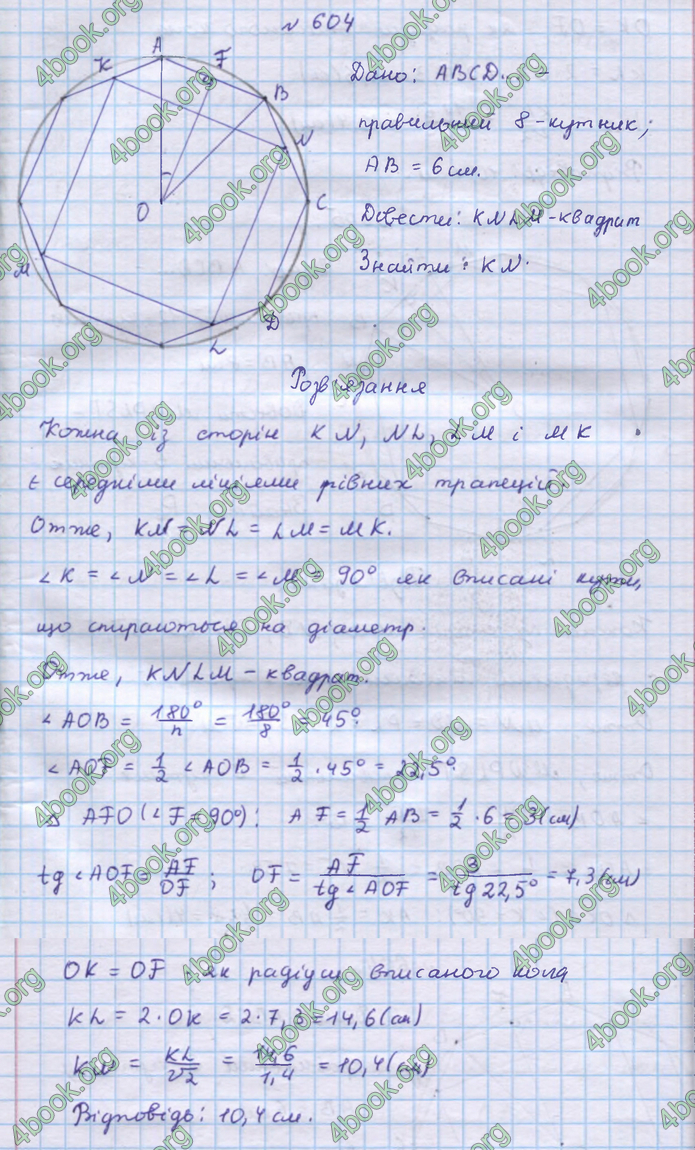 № 604
A
K
F
B
N
O
C
M
D
L
Дано: ABCD... –
правильний 8-кутник;
AB = 6 см.
Довести: KNLM - квадрат
Знайти: KN.
Розв'язання
Кожна із сторін KN, NL, LM і MK
є середніми лініями рівних трапецій.
Отже, KN = NL = LM = MK.
∠K = ∠N = ∠L = ∠M = 90° як вписані кути,
що спираються на діаметр.
Отже, KNLM - квадрат.
∠AOB = 180°/n = 180°/8 = 45°.
∠AOF = 1/2 ∠AOB = 1/2 · 45° = 22,5°.
Δ AFO (∠F = 90°): AF = 1/2 AB = 1/2 · 6 = 3 (см)
tg ∠AOF = AF/OF; OF = AF/tg ∠AOF = 3/tg 22,5° = 7,3 (см)
OK = OF як радіуси вписаного кола
KL = 2 · OK = 2 · 7,3 = 14,6 (см)
KN = KL/√2 = 14,6/1,4 = 10,4 (см)
Відповідь: 10,4 см.
4book.org